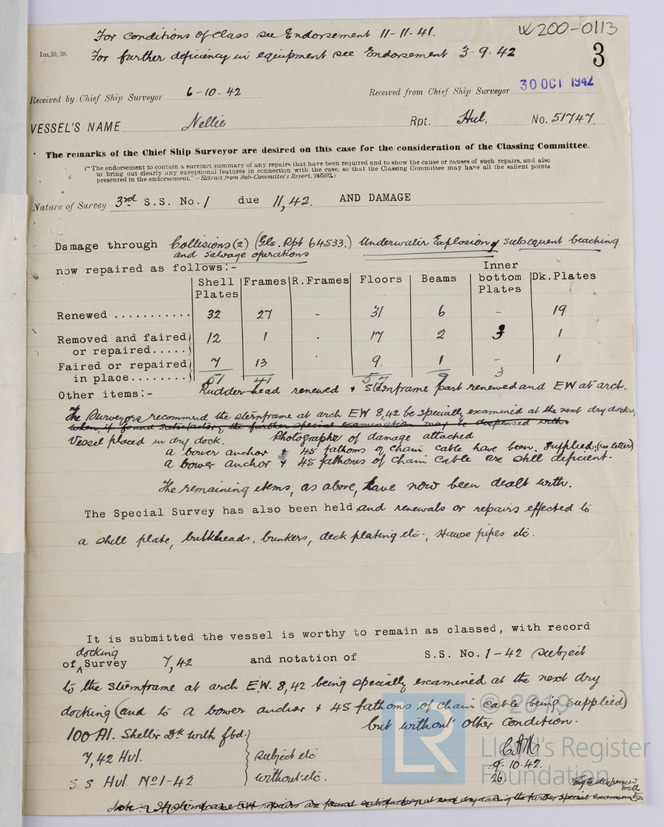 W200-0113
For Conditions of Class see Endorsement 11-11-41.
1m,10,39.
For further deficiency in equipment see Endorsement 3-9-42
3
30 OCT 1942
Received by Chief Ship Surveyor 6-10-42 Received from Chief Ship Surveyor
VESSEL'S NAME Nellie Rpt. Hul. No. 51747.
The remarks of the Chief Ship Surveyor are desired on this case for the consideration of the Classing Committee.
("The endorsement to contain a succinct summary of any repairs that have been required and to show the cause or causes of such repairs, and also
to bring out clearly any exceptional features in connection with the case, so that the Classing Committee may have all the salient points
presented in the endorsement."—Extract from Sub-Committee's Report,
Nature of Survey 3rd S.S. No. 1 due 11,42. AND DAMAGE
Damage through Collisions (2) (Gls. Rpt 64533.) Underwater Explosion, subsequent beaching
and salvage operations
now repaired as follows:-
Shell Plates Frames R.Frames Floors Beams Inner bottom Plates Dk.Plates
Renewed ........... 32 27 - 31 6 - 19
Removed and faired or repaired..... 12 1 - 17 2 3 1
Faired or repaired in place........ 7 13 9. 1 - 1
51 41 57 9 3
Other items:- Rudder head renewed & sternframe part renewed and EW at arch.
The Surveyors recommend the sternframe at arch EW 8,42 be specially examined at the next dry docking,
when if found satisfactory the further special examination may be dispensed with
Vessel placed in dry dock. Photographs of damage attached
a bower anchor & 45 fathoms of chain cable have been supplied (see letter)
a bower anchor & 45 fathoms of chain cable are still deficient.
The remaining items, as above, have now been dealt with.
The Special Survey has also been held and renewals or repairs effected to
a shell plate, bulkheads, bunkers, deck plating etc., Hawse pipes etc.
It is submitted the vessel is worthy to remain as classed, with record
docking
of Survey 7,42 and notation of S.S. No. 1-42 subject
to the sternframe at arch E.W. 8,42 being specially examined at the next dry
docking (and to a bower anchor & 45 fathoms of chain cable being supplied)
but without other condition.
100 A1. Shelter Dk with fbd.
7,42 Hul. subject etc
S S Hul. No 1-42 without etc.
9.10.42.
© 2019
LR
Lloyd's Register
Foundation